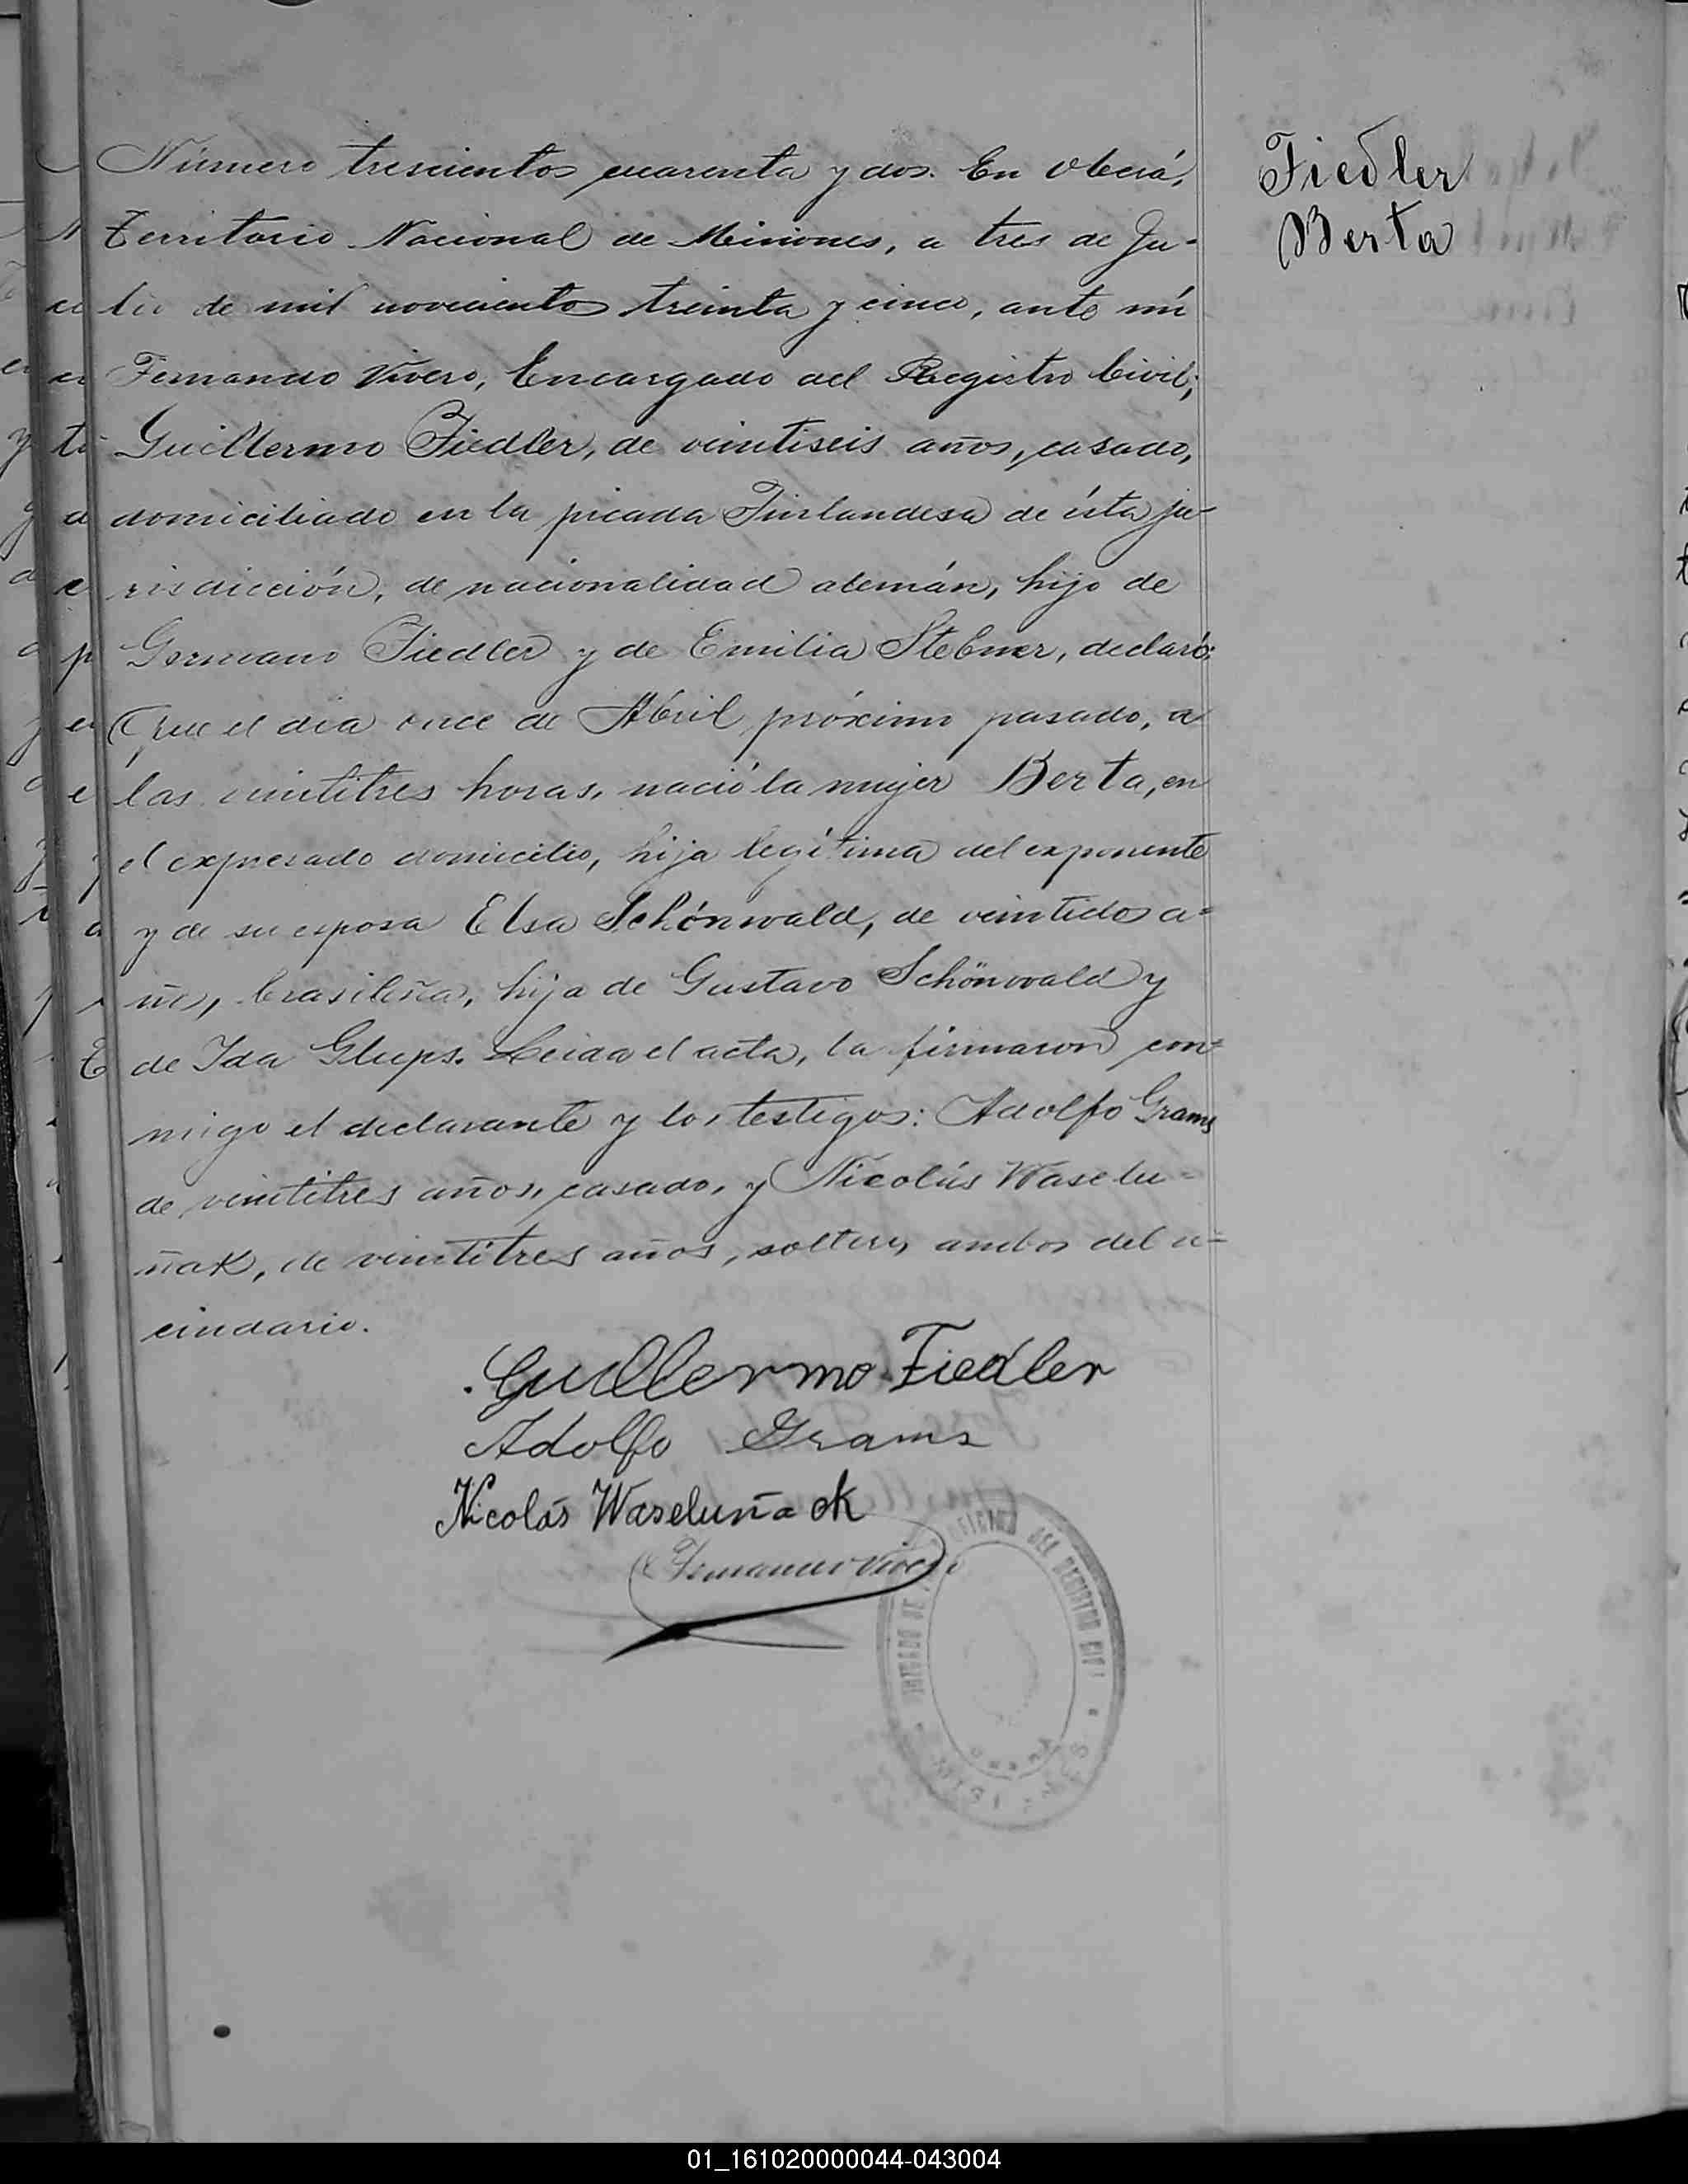 Número trescientos cuarenta y dos. En Oberá,
Territorio Nacional de Misiones, a tres de Ju-
lio de mil novecientos treinta y cinco, ante mí
Fernando Vivero, Encargado del Registro Civil;
Guillermo Fiedler, de veintiseis años, casado,
domiciliado en la picada Finlandesa de ésta ju-
risdicción, de nacionalidad alemán, hijo de
Germano Fiedler y de Emilia Stebner, declaró:
Que el día once de Abril próximo pasado, a
las veintitres horas, nació la mujer Berta, en
el expresado domicilio, hija legítima del exponente
y de su esposa Elsa Schönwald, de veintidos a=
ños, brasileña, hija de Gustavo Schönwald y
de Ida Glups. Leida el acta, la firmaron con=
migo el declarante y los testigos: Adolfo Grams
de veintitres años, casado, y Nicolás Waselu=
ñak, de veintitres años, soltero, ambos del ve=
cindario.
Fiedler
Berta
Guillermo Fiedler
Adolfo Grams
Nicolás Waseluñack
Fernando Vivero
OFICINA DEL REGISTRO CIVIL
MISIONES
01_161020000044-043004